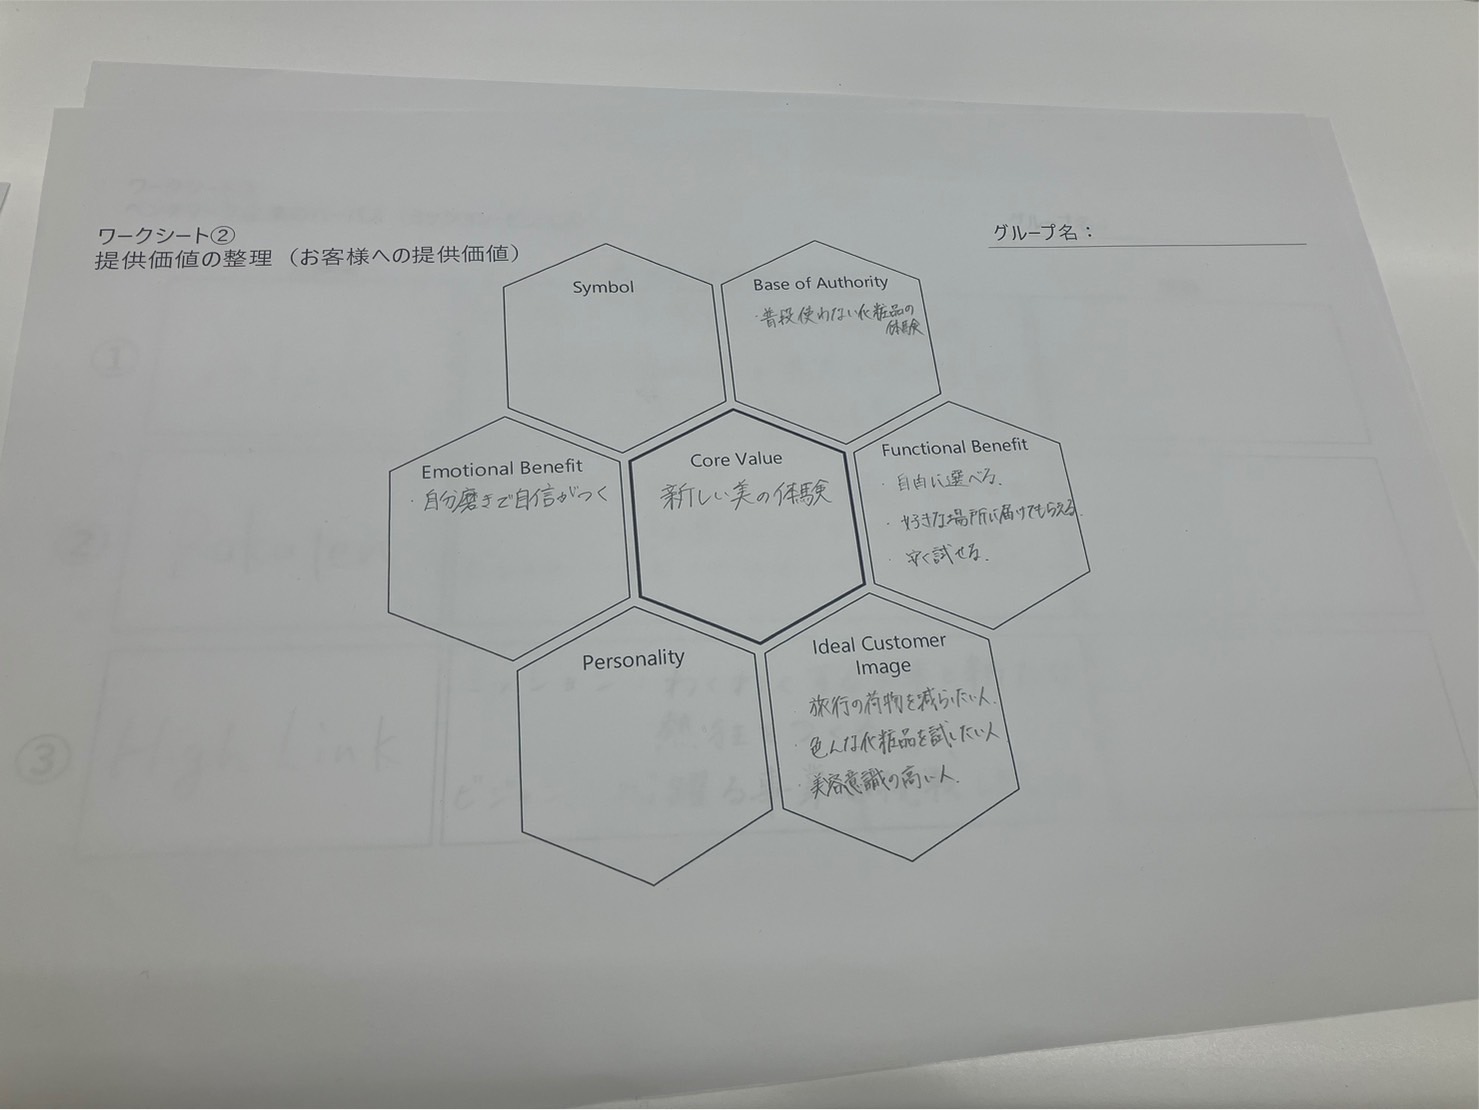 ワークシート②
提供価値の整理（お客様への提供価値）
グループ名：
Symbol
Base of Authority
・普段使わない化粧品の
体験
Emotional Benefit
・自分磨きで自信がつく
Core Value
新しい美の体験
Functional Benefit
・自由に選べる.
・好きな場所に届けてもらえる.
・安く試せる.
Personality
Ideal Customer
Image
旅行の荷物を減らしたい人.
・色んな化粧品を試したい人
・美容意識の高い人.
①
②
③
High Link